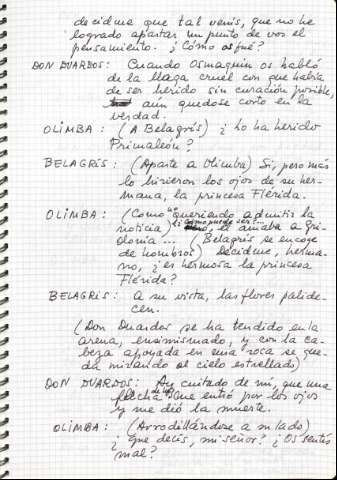 decidme que tal venís, que no he
logrado apartar un punto de vos el
pensamiento. ¿Cómo os fué?
DON DUARDOS: Cuando Osmaquin os habló
de la llaga cruél con que había
de ser herido sin curación posible,
aún quedose corto en la
verdad.
OLIMBA: (A Belagrís) ¿Lo ha herido
Primaleón?
BELAGRÍS: (Aparte a Olimba) Sí, pero más
lo hirieron los ojos de su her-
mana, la princesa Flérida.
OLIMBA: (Como no queriendo admitir la
noticia) ¿Cómo puede ser?... él amaba a Gri-
donia... (Belagrís se encoge
de hombros) Decidme, herma-
no, ¿es hermosa la princesa
Flérida?
BELAGRÍS: A su vista, las flores palide-
cen.
(Don Duardos se ha tendido en la
arena, ensimismado, y con la ca-
beza apoyada en una roca se que-
da mirando al cielo estrellado)
DON DUARDOS: Ay cuitado de mí, que una
flecha se me entró por los ojos
y me dió la muerte.
OLIMBA: (Arrodillándose a su lado)
¿Que decís, mi señor? ¿Os sentís
mal?